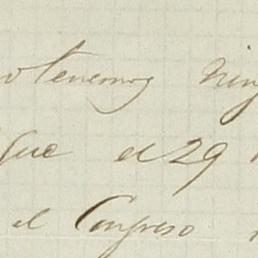 o tenemos nin
que el 29
el Congreso